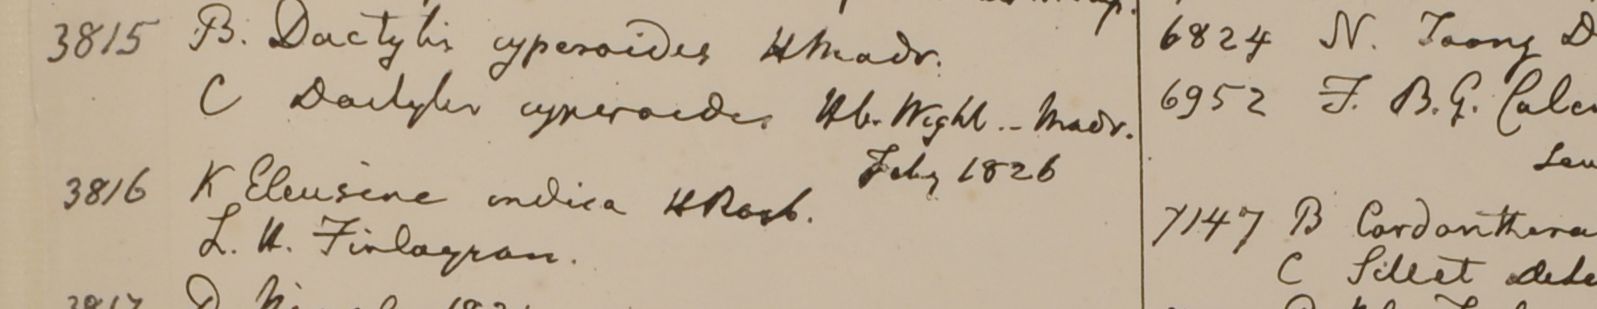 3815 B. Dactylis cyperoides HMadr.
C Dactylis cyperoides Hb. Wight -- Madr.
Feby 1826
3816 K Eleusine indica HRoxb.
L. H. Finlayson.
6824 N. Taong D
6952 F. B.G. Calcu
7147 B Cardanthera
C Sillet